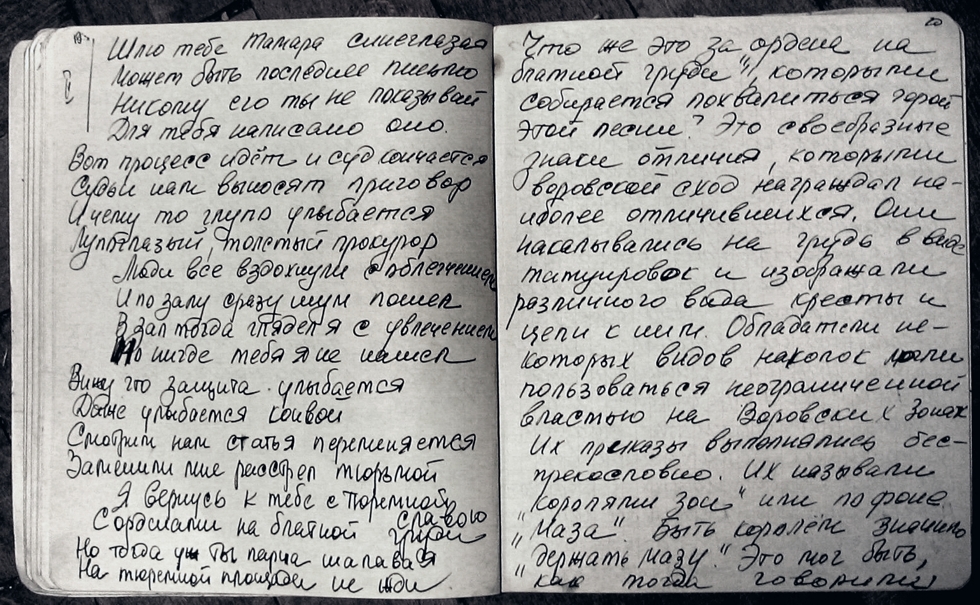 Шлю тебе Тамара синеглазая
Может быть последнее письмо
Никому его ты не показывай
Для тебя написано оно.
Вот процесс идёт и суд кончается
Судьи нам выносят приговор
И чему то глупо улыбается
Лупоглазый, толстый прокурор
Люди все вздохнули с облегчением
И по залу сразу шум пошел
В зал тогда глядел я с увлечением
Но нигде тебя я не нашел
Вижу что защита улыбается
Даже улыбается конвой
Смотрим нам статья переменяется
Заменили мне расстрел тюрьмой
Я вернусь к тебе с тюремною
славою
С орденами на блатной груди
Но тогда уж ты парня шалавая
На тюремной площади не жди
50
Что же это за ордена на
блатной груди", которыми
собирается похвалиться герой
этой песни? Это своеобразные
знаки отличия, которыми
воровской сход награждал на-
иболее отличившихся. Они
накалывались на грудь в виде
татуировок и изображали
различного вида кресты и
цепи к ним. Обладатели не-
которых видов наколок могли
пользоваться неограниченной
властью на Воровских Зонах
Их приказы выполнялись бес-
прекословно. Их называли
"королями зон" или по фене
"Маза". Быть королем значило
"держать мазу". Это мог быть,
как тогда говорили,